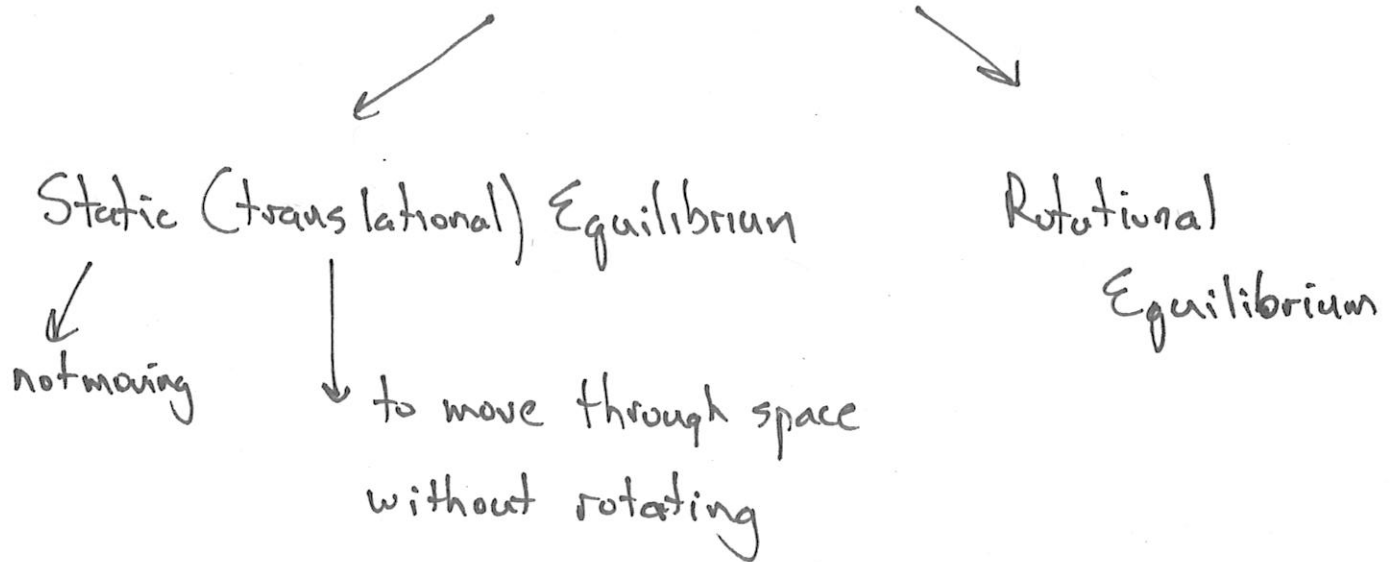 Static (translational) Equilibrium
Rotational
Equilibrium
not moving
to move through space
without rotating